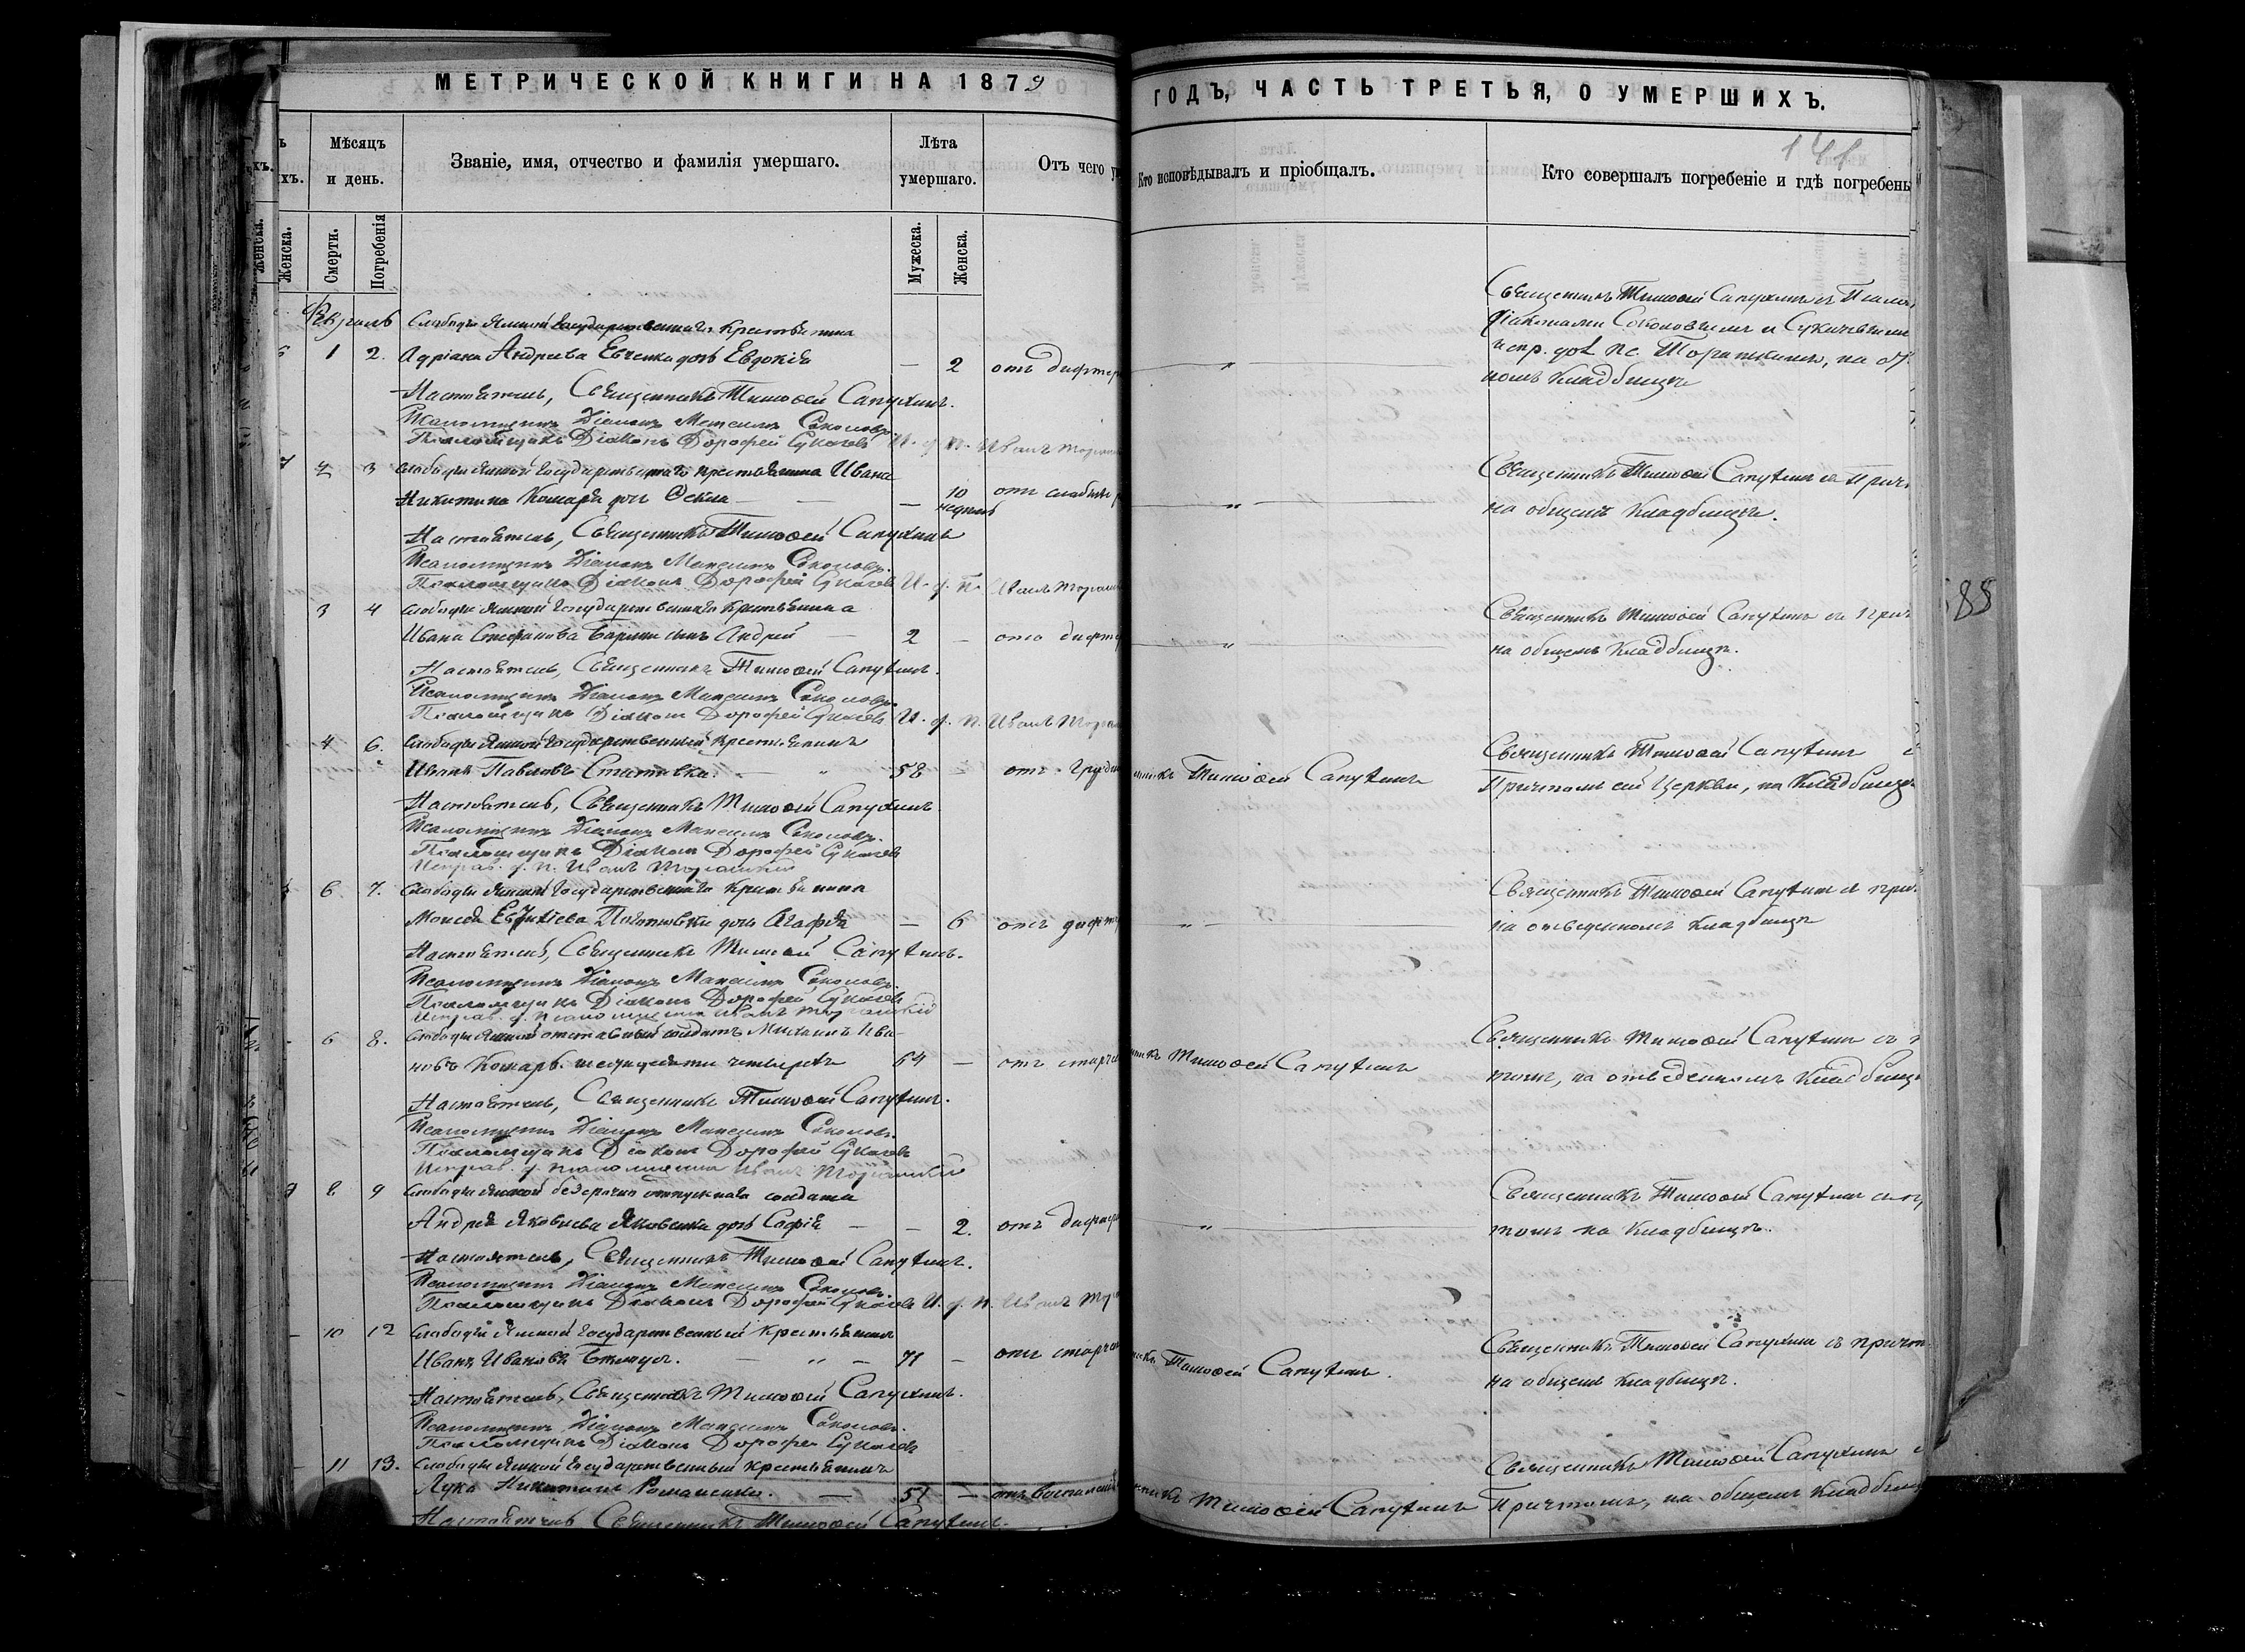 МЕТРИЧЕСКОЙ КНИГИ НА 1879
Мѣсяцъ и день.
Званіе, имя, отчество и фамилія умершаго.
Лѣта умершаго.
Отъ чего
Женска.
Женска.
Смерти.
Погребенія
Мужеска.
Женска.
Февраль Слободы Ямной Государственнаго крестьянина
1 2. Адріана Андреева Евченка дочь Евдокія — 2 отъ дифтер
Настоятель, Священникъ Тимоѳей Сапухинъ.
Псаломщикъ Діаконъ Максимъ Соколовъ.
Псаломщикъ Діаконъ Дорофей Сукачевъ И. д. п. Иванъ
2 3 Слободы Ямной Государственнаго крестьянина Ивана
Никитина Комаря дочь Ѳекла — 10 недѣль отъ слабости
Настоятель, Священникъ Тимоѳей Сапухинъ
Псаломщикъ Діаконъ Максимъ Соколовъ.
Псаломщикъ Діаконъ Дорофей Сукачевъ И. д. п. Иванъ
3 4 Слободы Ямной Государственнаго крестьянина
Ивана Стефанова сынъ Андрей — 2 — отъ дифте
Настоятель, Священникъ Тимоѳей Сапухинъ.
Псаломщикъ Діаконъ Максимъ Соколовъ.
Псаломщикъ Діаконъ Дорофей Сукачевъ И. д. п. Иванъ
4 6. Слободы Ямной Государственный крестьянинъ
Иванъ Павловъ — „ 58 отъ груд
Настоятель, Священникъ Тимоѳей Сапухинъ.
Псаломщикъ Діаконъ Максимъ Соколовъ.
Псаломщикъ Діаконъ Дорофей Сукачевъ
Исправ. д. п. Иванъ
6 7. Слободы Ямной Государственнаго крестьянина
Моисея дочь Агафія — 6 отъ дифте
Настоятель, Священникъ Тимоѳей Сапухинъ.
Псаломщикъ Діаконъ Максимъ Соколовъ.
Псаломщикъ Діаконъ Дорофей Сукачевъ
Исправ. д. псаломщика Иванъ
6 8. Слободы Ямной отставный солдатъ Михаилъ Ива-
новъ Комарь. шестидесяти четырехъ 64 — отъ старч
Настоятель, Священникъ Тимоѳей Сапухинъ.
Псаломщикъ Діаконъ Максимъ Соколовъ.
Псаломщикъ Діаконъ Дорофей Сукачевъ
Исправ. д. псаломщика Иванъ
8 9 Слободы Ямной безсрочно отпускнаго солдата
Андрея Яковлева Яковенка дочь Софія — — 2. отъ дифте
Настоятель, Священникъ Тимоѳей Сапухинъ.
Псаломщикъ Діаконъ Максимъ Соколовъ.
Псаломщикъ Діаконъ Дорофей Сукачевъ И. д. п. Иванъ
10 12 Слободы Ямной Государственный крестьянинъ
Иванъ Ивановъ — „ — 71 — отъ старч
Настоятель, Священникъ Тимоѳей Сапухинъ.
Псаломщикъ Діаконъ Максимъ Соколовъ.
Псаломщикъ Діаконъ Дорофей Сукачевъ
11 13. Слободы Ямной Государственный крестьянинъ
Лука Никитинъ Романенко. — 51 — отъ воспален
Настоятель Священникъ Тимоѳей Сапухинъ.
ГОДЪ, ЧАСТЬ ТРЕТЬЯ, О УМЕРШИХЪ.
Кто исповѣдывалъ и пріобщалъ.
Кто совершалъ погребеніе и гдѣ погребены
Священникъ Тимоѳей Сапухинъ съ
діаконами Соколовымъ и Сукачевымъ
и спр. дол. пс. на
номъ кладбищѣ
Священникъ Тимоѳей Сапухинъ съ прич
на общемъ кладбищѣ.
Священникъ Тимоѳей Сапухинъ съ прич
на общемъ кладбищѣ.
Тимоѳей Сапухинъ
Священникъ Тимоѳей Сапухинъ с
Причтомъ сей Церкви, на кладбищѣ
Священникъ Тимоѳей Сапухинъ съ при
на отведенномъ кладбищѣ
Тимоѳей Сапухинъ
Священникъ Тимоѳей Сапухинъ съ п
томъ, на отведенномъ кладбищѣ
Священникъ Тимоѳей Сапухинъ съ
томъ на кладбищѣ.
Тимоѳей Сапухинъ.
Священникъ Тимоѳей Сапухинъ съ причт
на общемъ кладбищѣ.
Тимоѳей Сапухинъ
Священникъ Тимоѳей Сапухинъ с
Причтомъ, на общемъ кладбищ